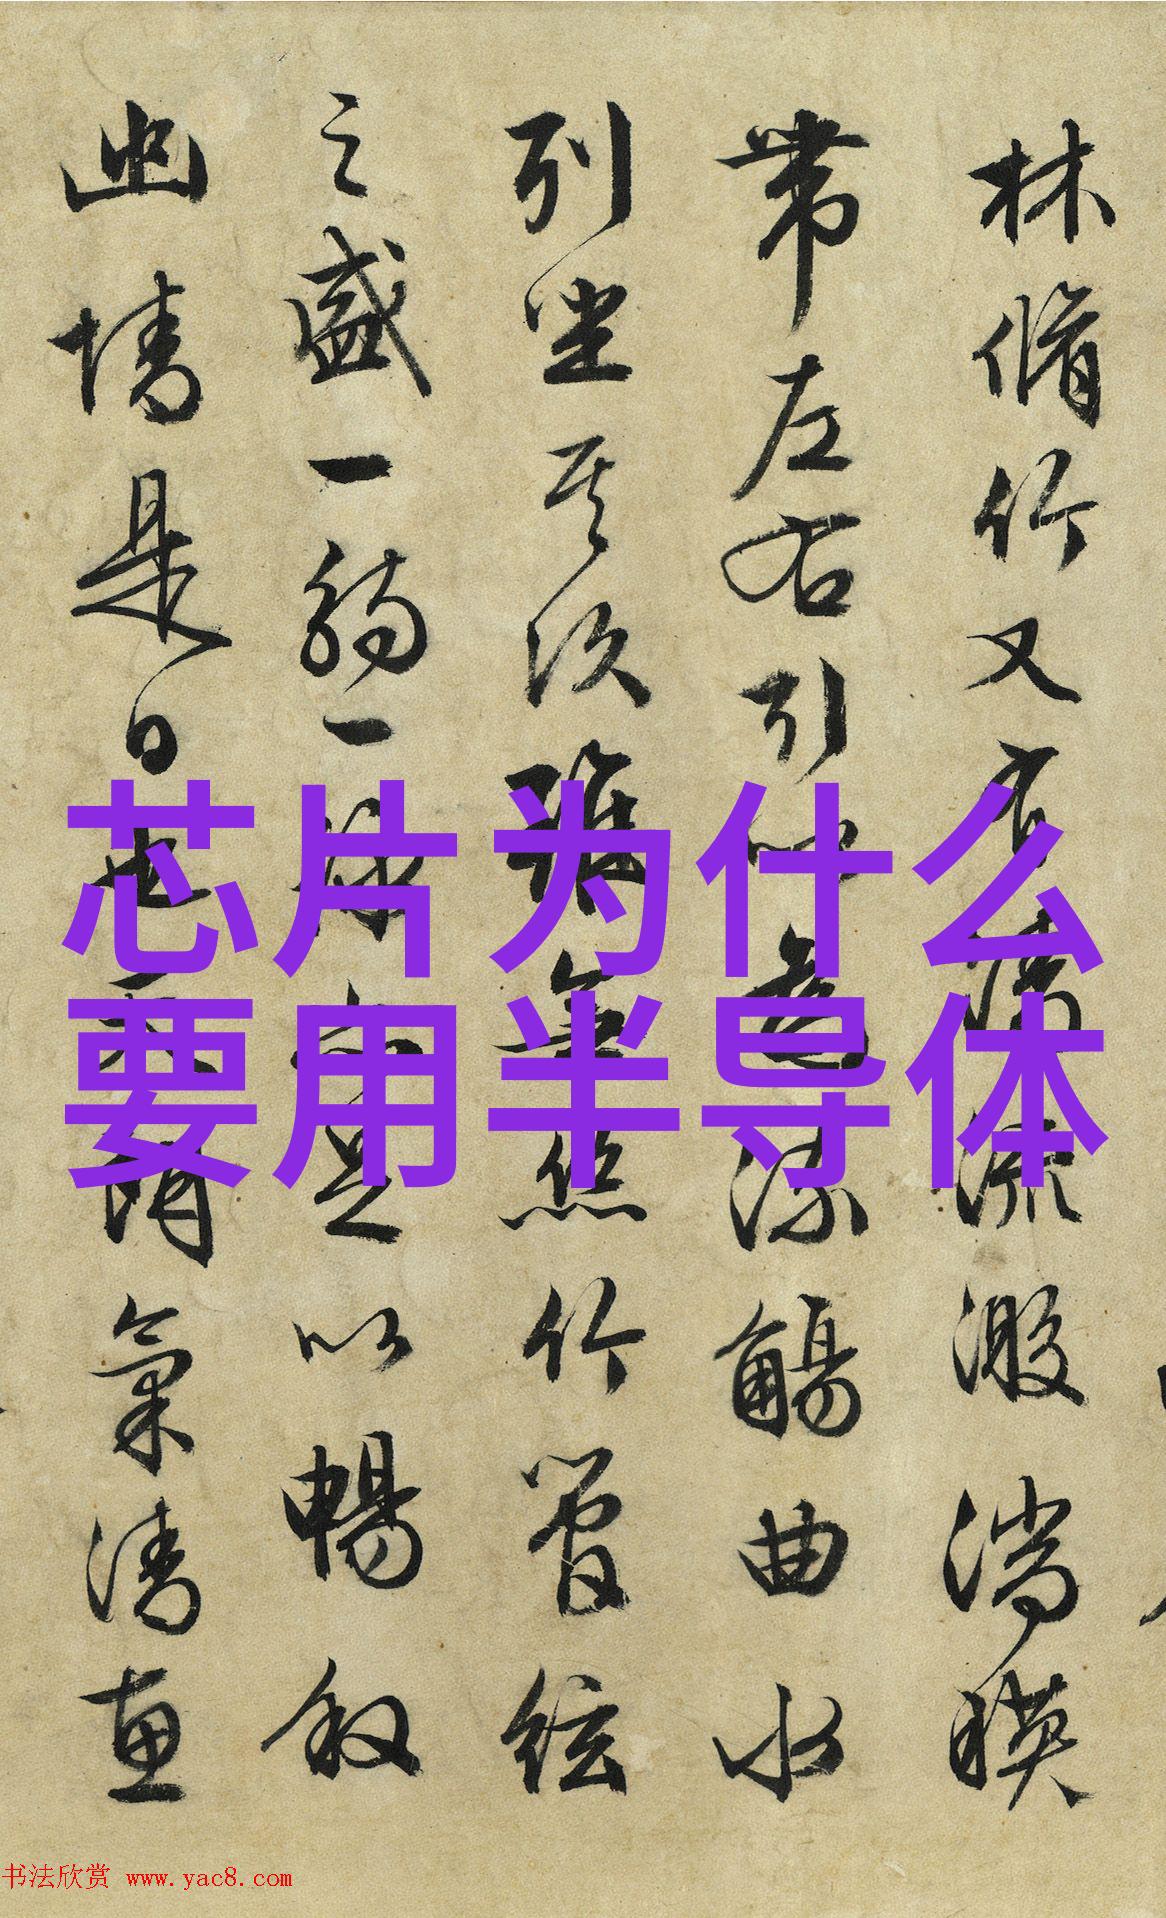 林脩竹又有清流激湍暎
帶左右引以為流觴曲水
列坐其次雖無絲竹管弦
之盛一觴一詠亦足以暢敘
幽情是日也天朗氣清惠
芯片为什么
要用半导体
书法欣赏 www.yac8.com